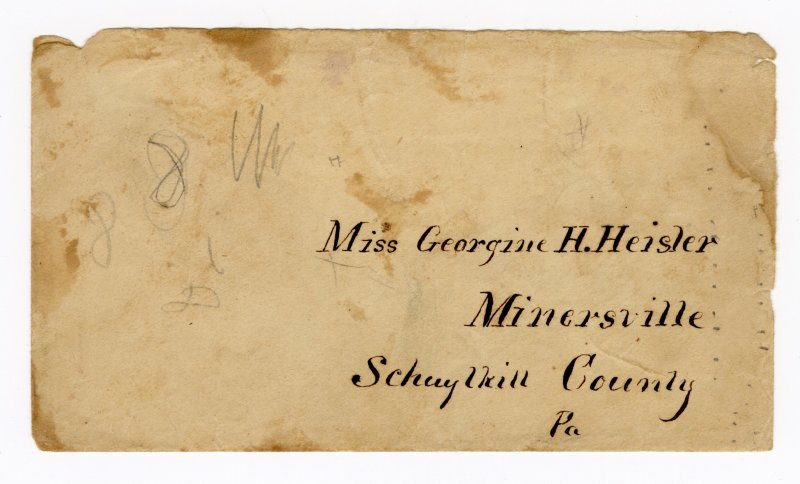 Miss Georgine H. Heisler
Minersville
Schuylkill County
Pa